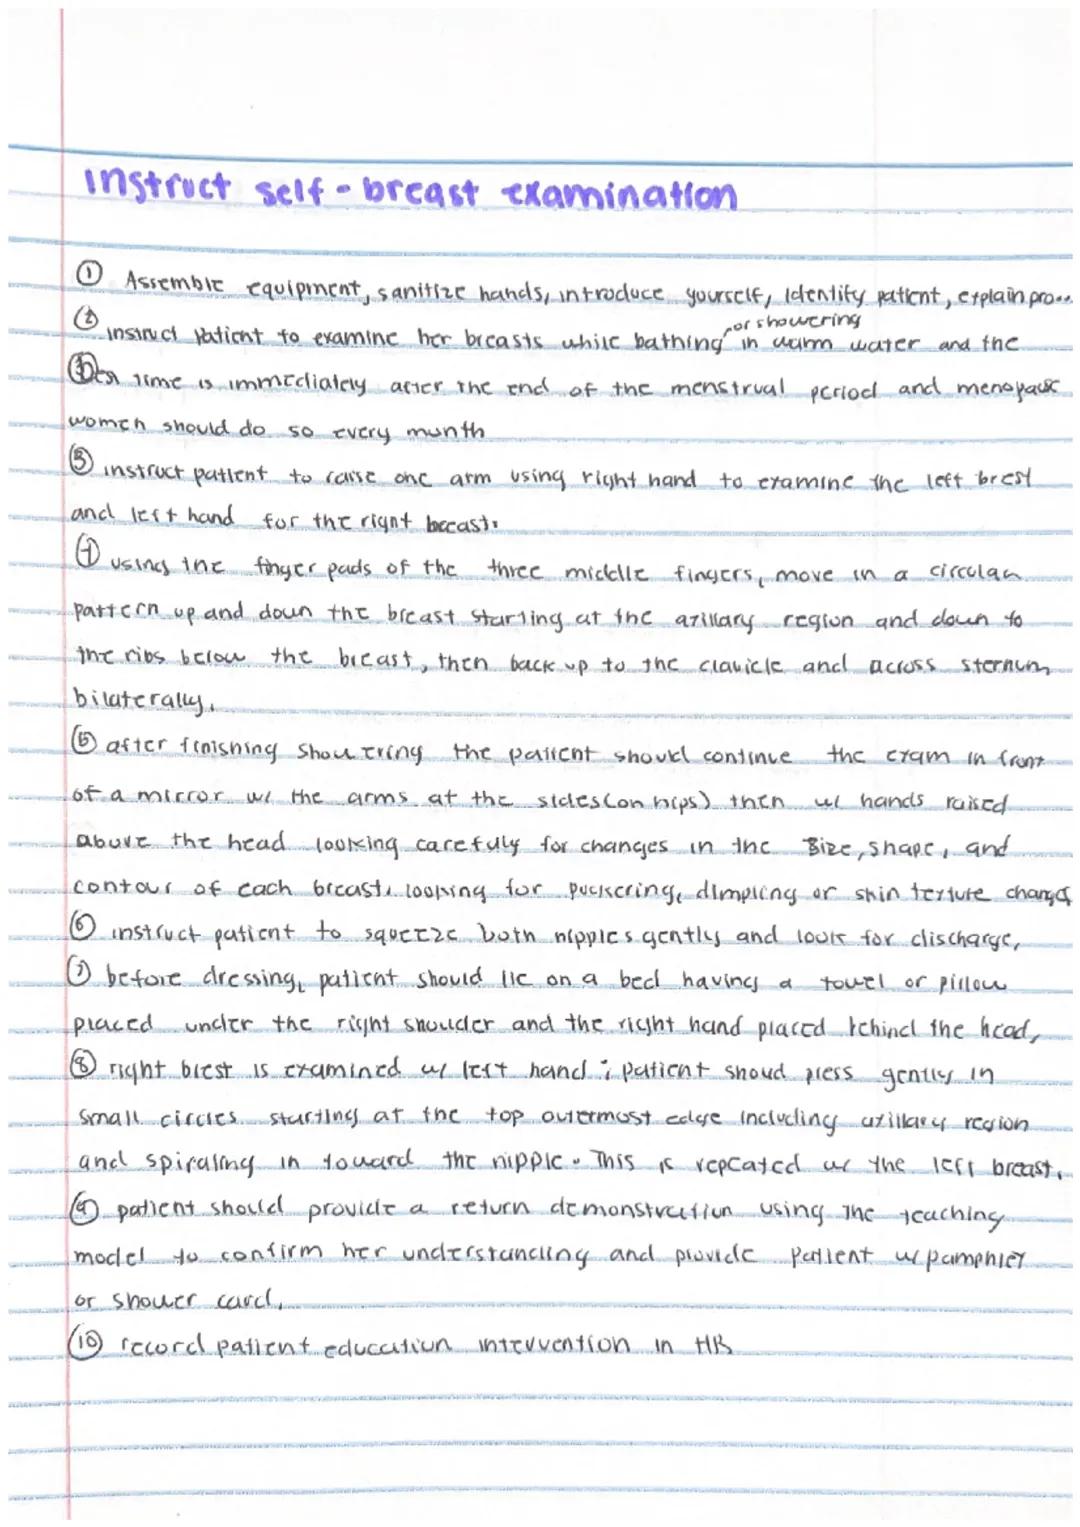 instruct self-breast examination
① Assemble equipment, sanitize hands, introduce yourself, identify patient, explain pro...
or showering
② instruct patient to examine her breasts while bathing in warm water and the
time is immediately after the end of the menstrual period and menopause
women should do so every month
③ instruct patient to raise one arm using right hand to examine the left brest
and left hand for the right breast.
④ using the finger pads of the three middle fingers, move in a circular
pattern up and down the breast starting at the axillary region and down to
the ribs below the breast, then back up to the clavicle and across sternum
bilaterally.
⑤ after finishing showering the patient should continue the exam in front
of a mirror w/ the arms at the sides (on hips) then w/ hands raised
above the head looking carefuly for changes in the size, shape, and
contour of each breast, looking for puckering, dimpling or skin texture changes
⑥ instruct patient to squeeze both nipples gently and look for discharge,
⑦ before dressing, patient should lie on a bed having a towel or pillow
placed under the right shoulder and the right hand placed behind the head,
⑧ right brest is examined w/ left hand; patient shoud press gently in
small circles starting at the top outermost edge including axillary region
and spiraling in toward the nipple. This is repeated w/ the left breast.
⑨ patient should provide a return demonstration using the teaching
model to confirm her understanding and provide patient w/ pamphlet
or shower card,
⑩ record patient education intervention in HR